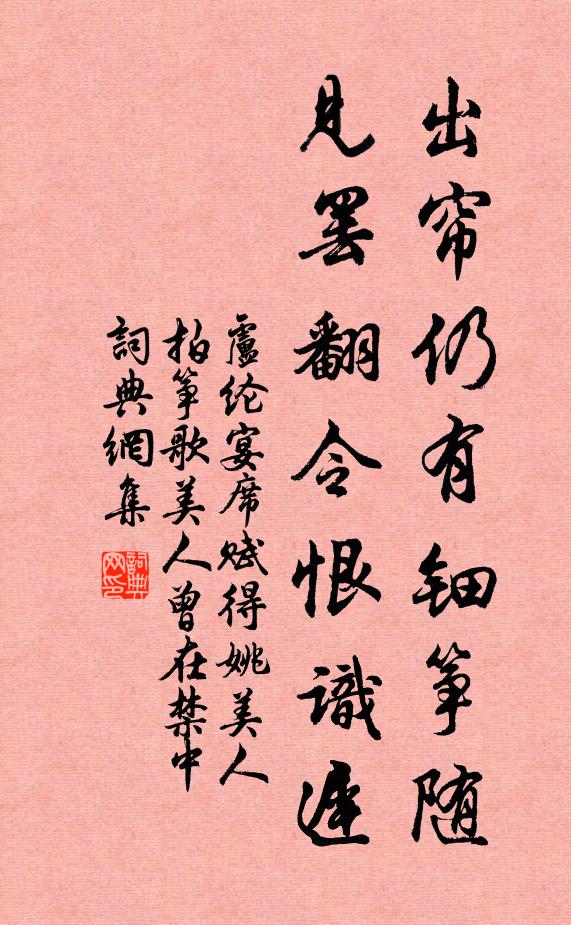 出帘仍有钿筝随
见罢翻令恨識遲
盧纶宴席赋得姚美人
拍筝歌美人曾在禁中
詞典網集
詞典网印